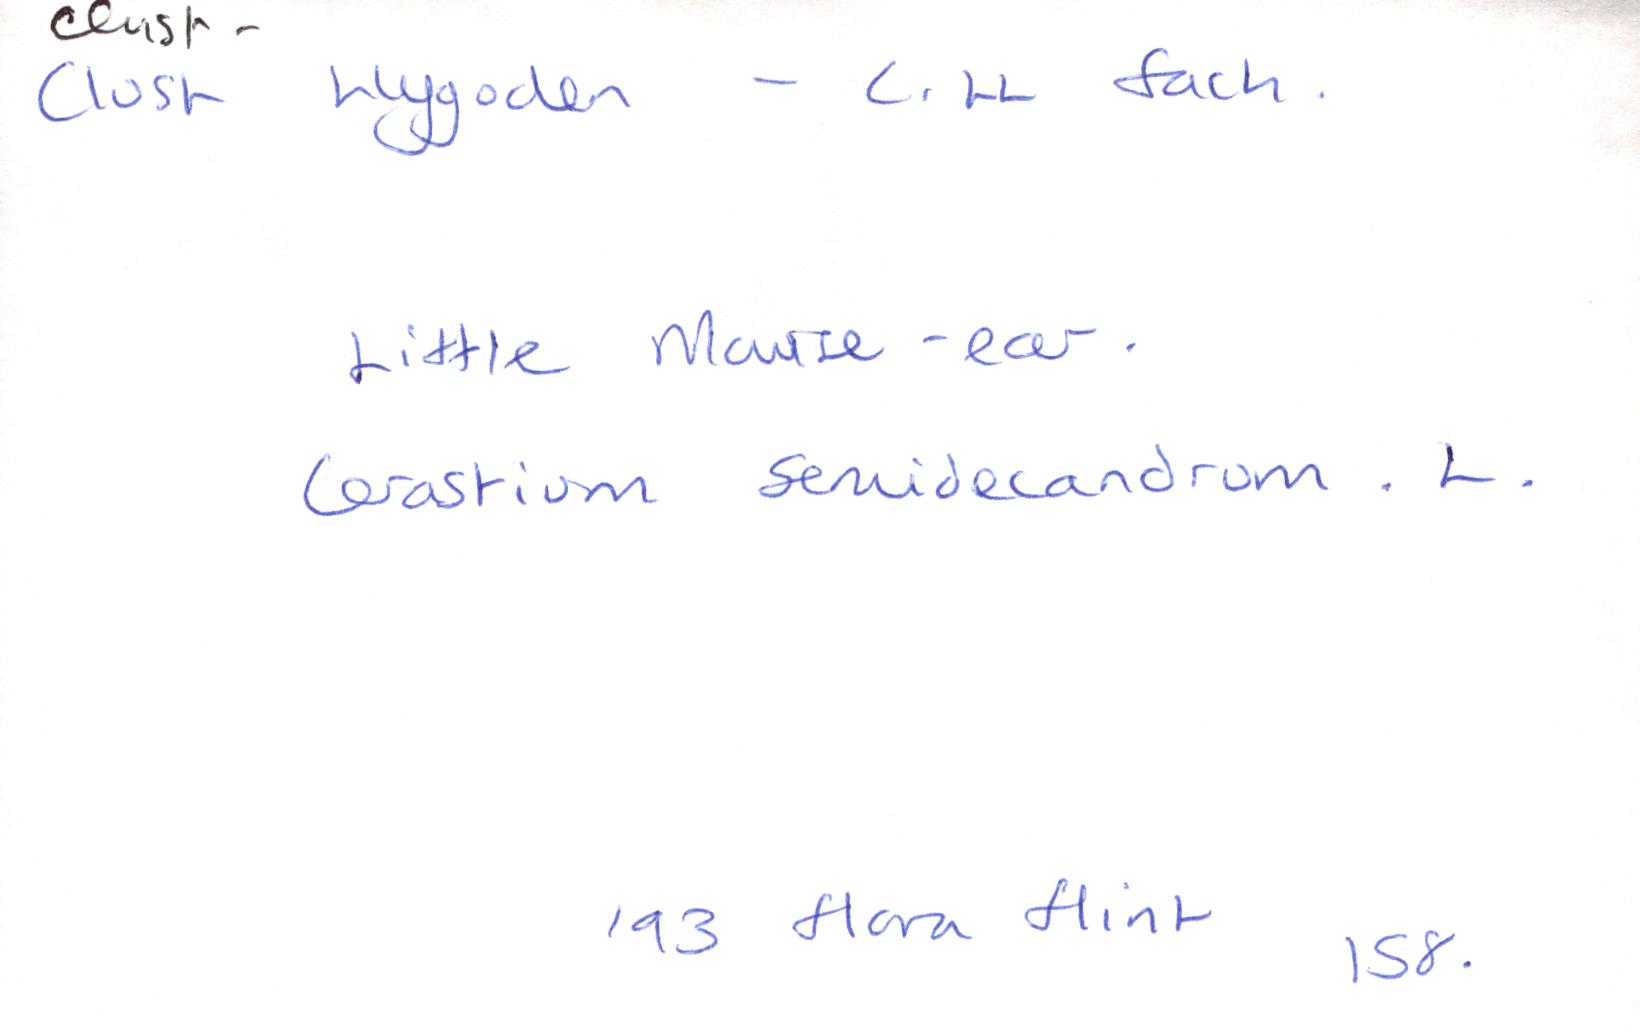 Clust -
Clust Llygoden - C. LL fach.
Little Mouse-ear.
Cerastium Semidecandrum. L.
'93 flora flint
158.